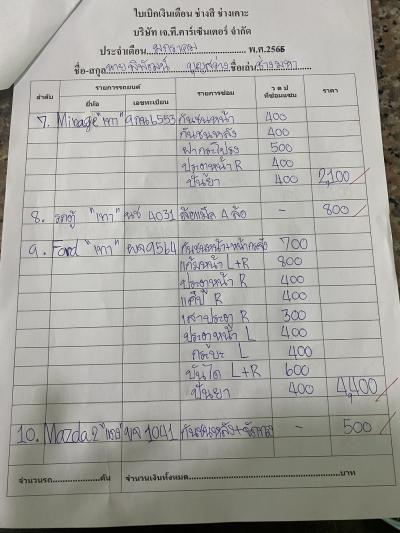 ใบเบิกเงินเดือน ช่างสี ช่างเคาะ
บริษัท เจ.ที.คาร์เซ็นเตอร์ จำกัด
ประจำเดือน มกราคม พ.ศ.2565
ชื่อ-สกุล นาย พิพัฒน์ บุญสว่าง ชื่อเล่น ช่างมหา
ลำดับ รายการรถยนต์ รายการซ่อม ว ด ป ราคา
ยี่ห้อ เลขทะเบียน ที่ซ่อมแซม
7. Mirage "เทา" 6553 กันชนหน้า 400
กันชนหลัง 400
ฝากระโปรง 500
ประตูหน้า R 400
ปั้นยา 400 2,100
8. รถตู้ "เทา" นข 4031 ล้อแม็ค 4 ล้อ - 800
9. Ford "เทา" 9564 กันชนหน้า+หน้ากระจัง 700
แก้มหน้า L+R 800
ประตูหน้า R 400
แค๊ป R 400
เสาประตู R 300
ประตูหน้า L 400
กระบะ L 400
บันได L+R 600
ปั้นยา 400 4,400
10. Mazda 2 "แดง" 1041 กันชนหลัง+ - 500
จำนวนรถ....................คัน จำนวนเงินทั้งหมด....................บาท